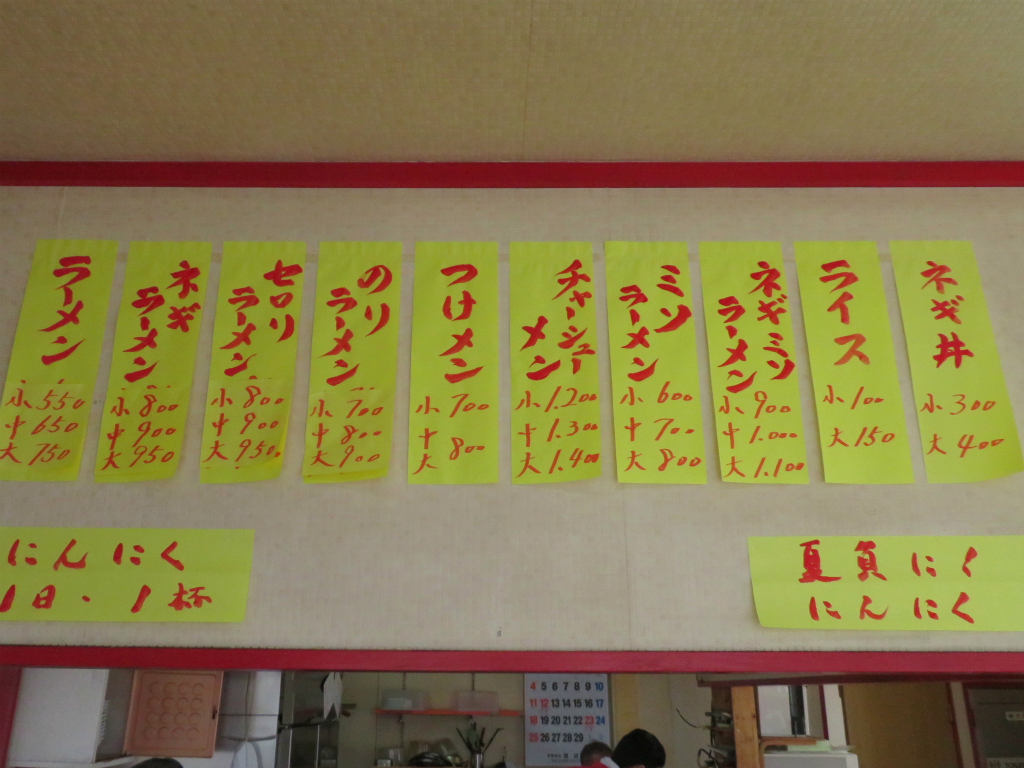 ラーメン
小 550
中 650
大 750
ネギ
ラーメン
小 800
中 900
大 950
セロリ
ラーメン
小 800
中 900
大 950
のり
ラーメン
小 700
中 800
大 900
つけメン
小 700
中
大 800
チャーシュー
メン
小 1.200
中 1.300
大 1.400
ミソ
ラーメン
小 600
中 700
大 800
ネギミソ
ラーメン
小 900
中 1.000
大 1.100
ライス
小 100
大 150
ネギ丼
小 300
大 400
にんにく
1日・1杯
夏負に!
にんにく
4 5 6 7 8 9 10
11 12 13 14 15 16 17
18 19 20 21 22 23 24
25 26 27 28 29